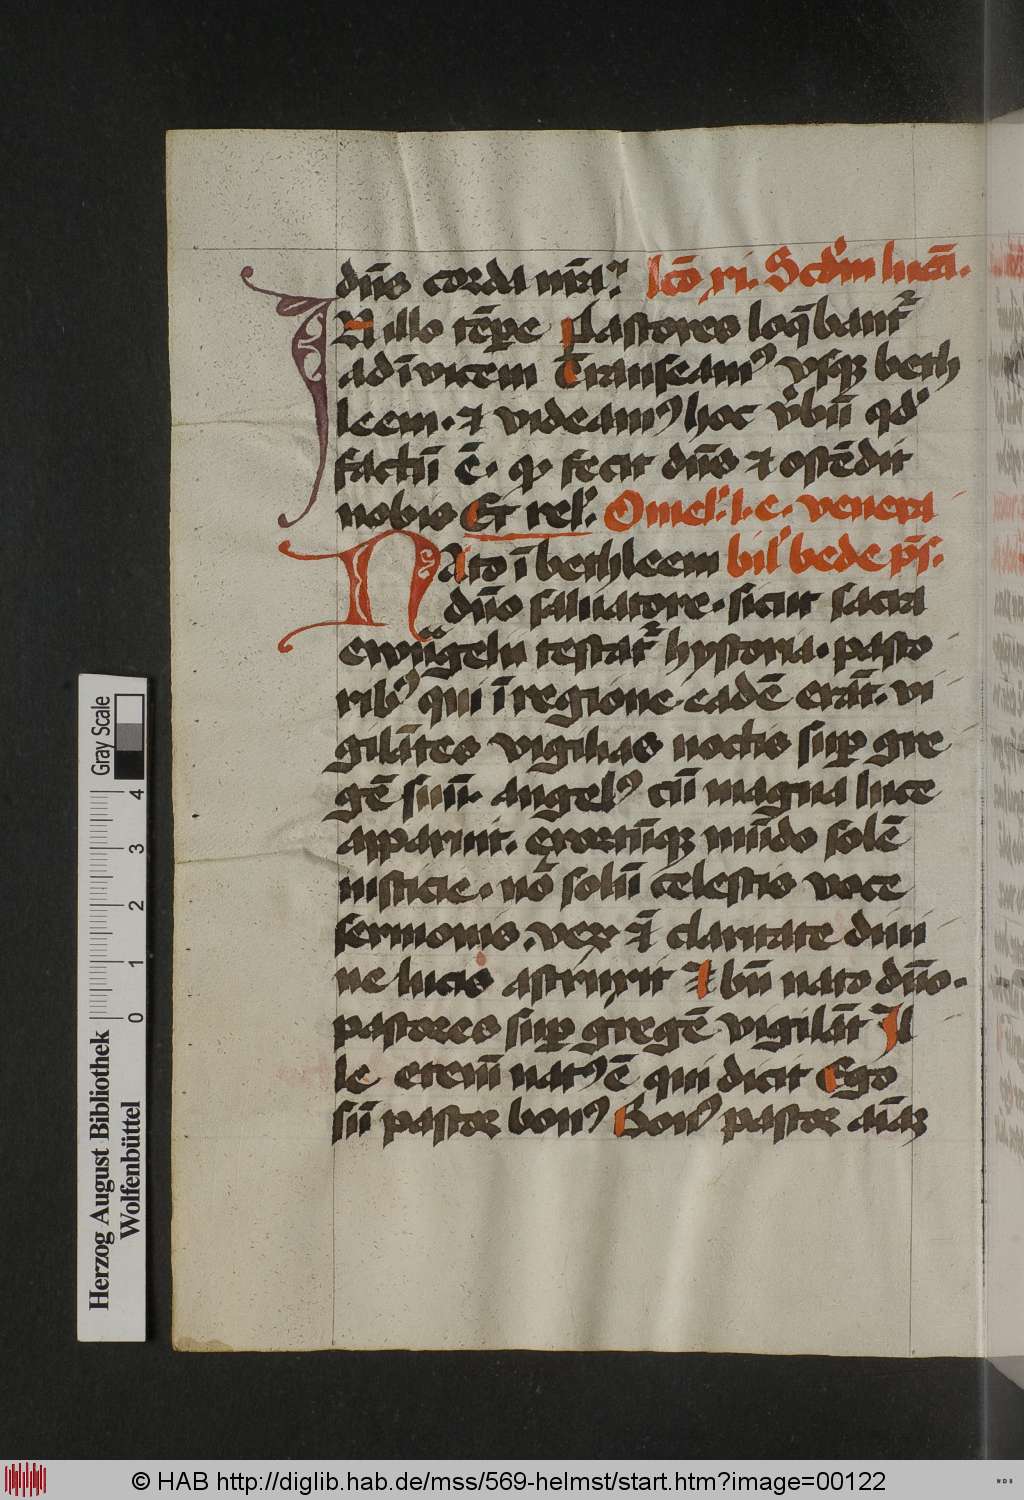 dn̄s corda nr̄a. lcō xi. Scdm lucā.
IN illo tēpe Pastores loq̄bant᷑
ad īvicem Transeamꝯ vsqꝫ beth
leem. ⁊ videamꝯ hoc v̓bū qd̓
factū ē. qḋ fecit dn̄s ⁊ ostēdit
nobis Et rel̓. Omel̓. l. e. venera
NAto ī bethleem bil̓ bede p̄s.
dn̄o saluatore. sicut sacra
ewāgelii testat᷑ hystoria. pasto
ribꝯ qui ī regione eadē erāt. vi
gilātes vigilias noctis suꝑ gre
gē suū. angelꝯ cū magna luce
apparuit. exortūqꝫ mūdo solē
iusticie. nō solū celestis voce
sermonis. veꝝ ⁊̄ claritate diui
ne lucis astruxit ⁊ bn̄ nato dn̄o.
pastores suꝑ gregē vigilāt Il
le eteni̅ natꝯ ē qui dicit Ego
sū pastor bonꝯ Bonꝯ pastor aīaꝫ
Gray Scale
0 1 2 3 4
Herzog August Bibliothek
Wolfenbüttel
© HAB http://diglib.hab.de/mss/569-helmst/start.htm?image=00122